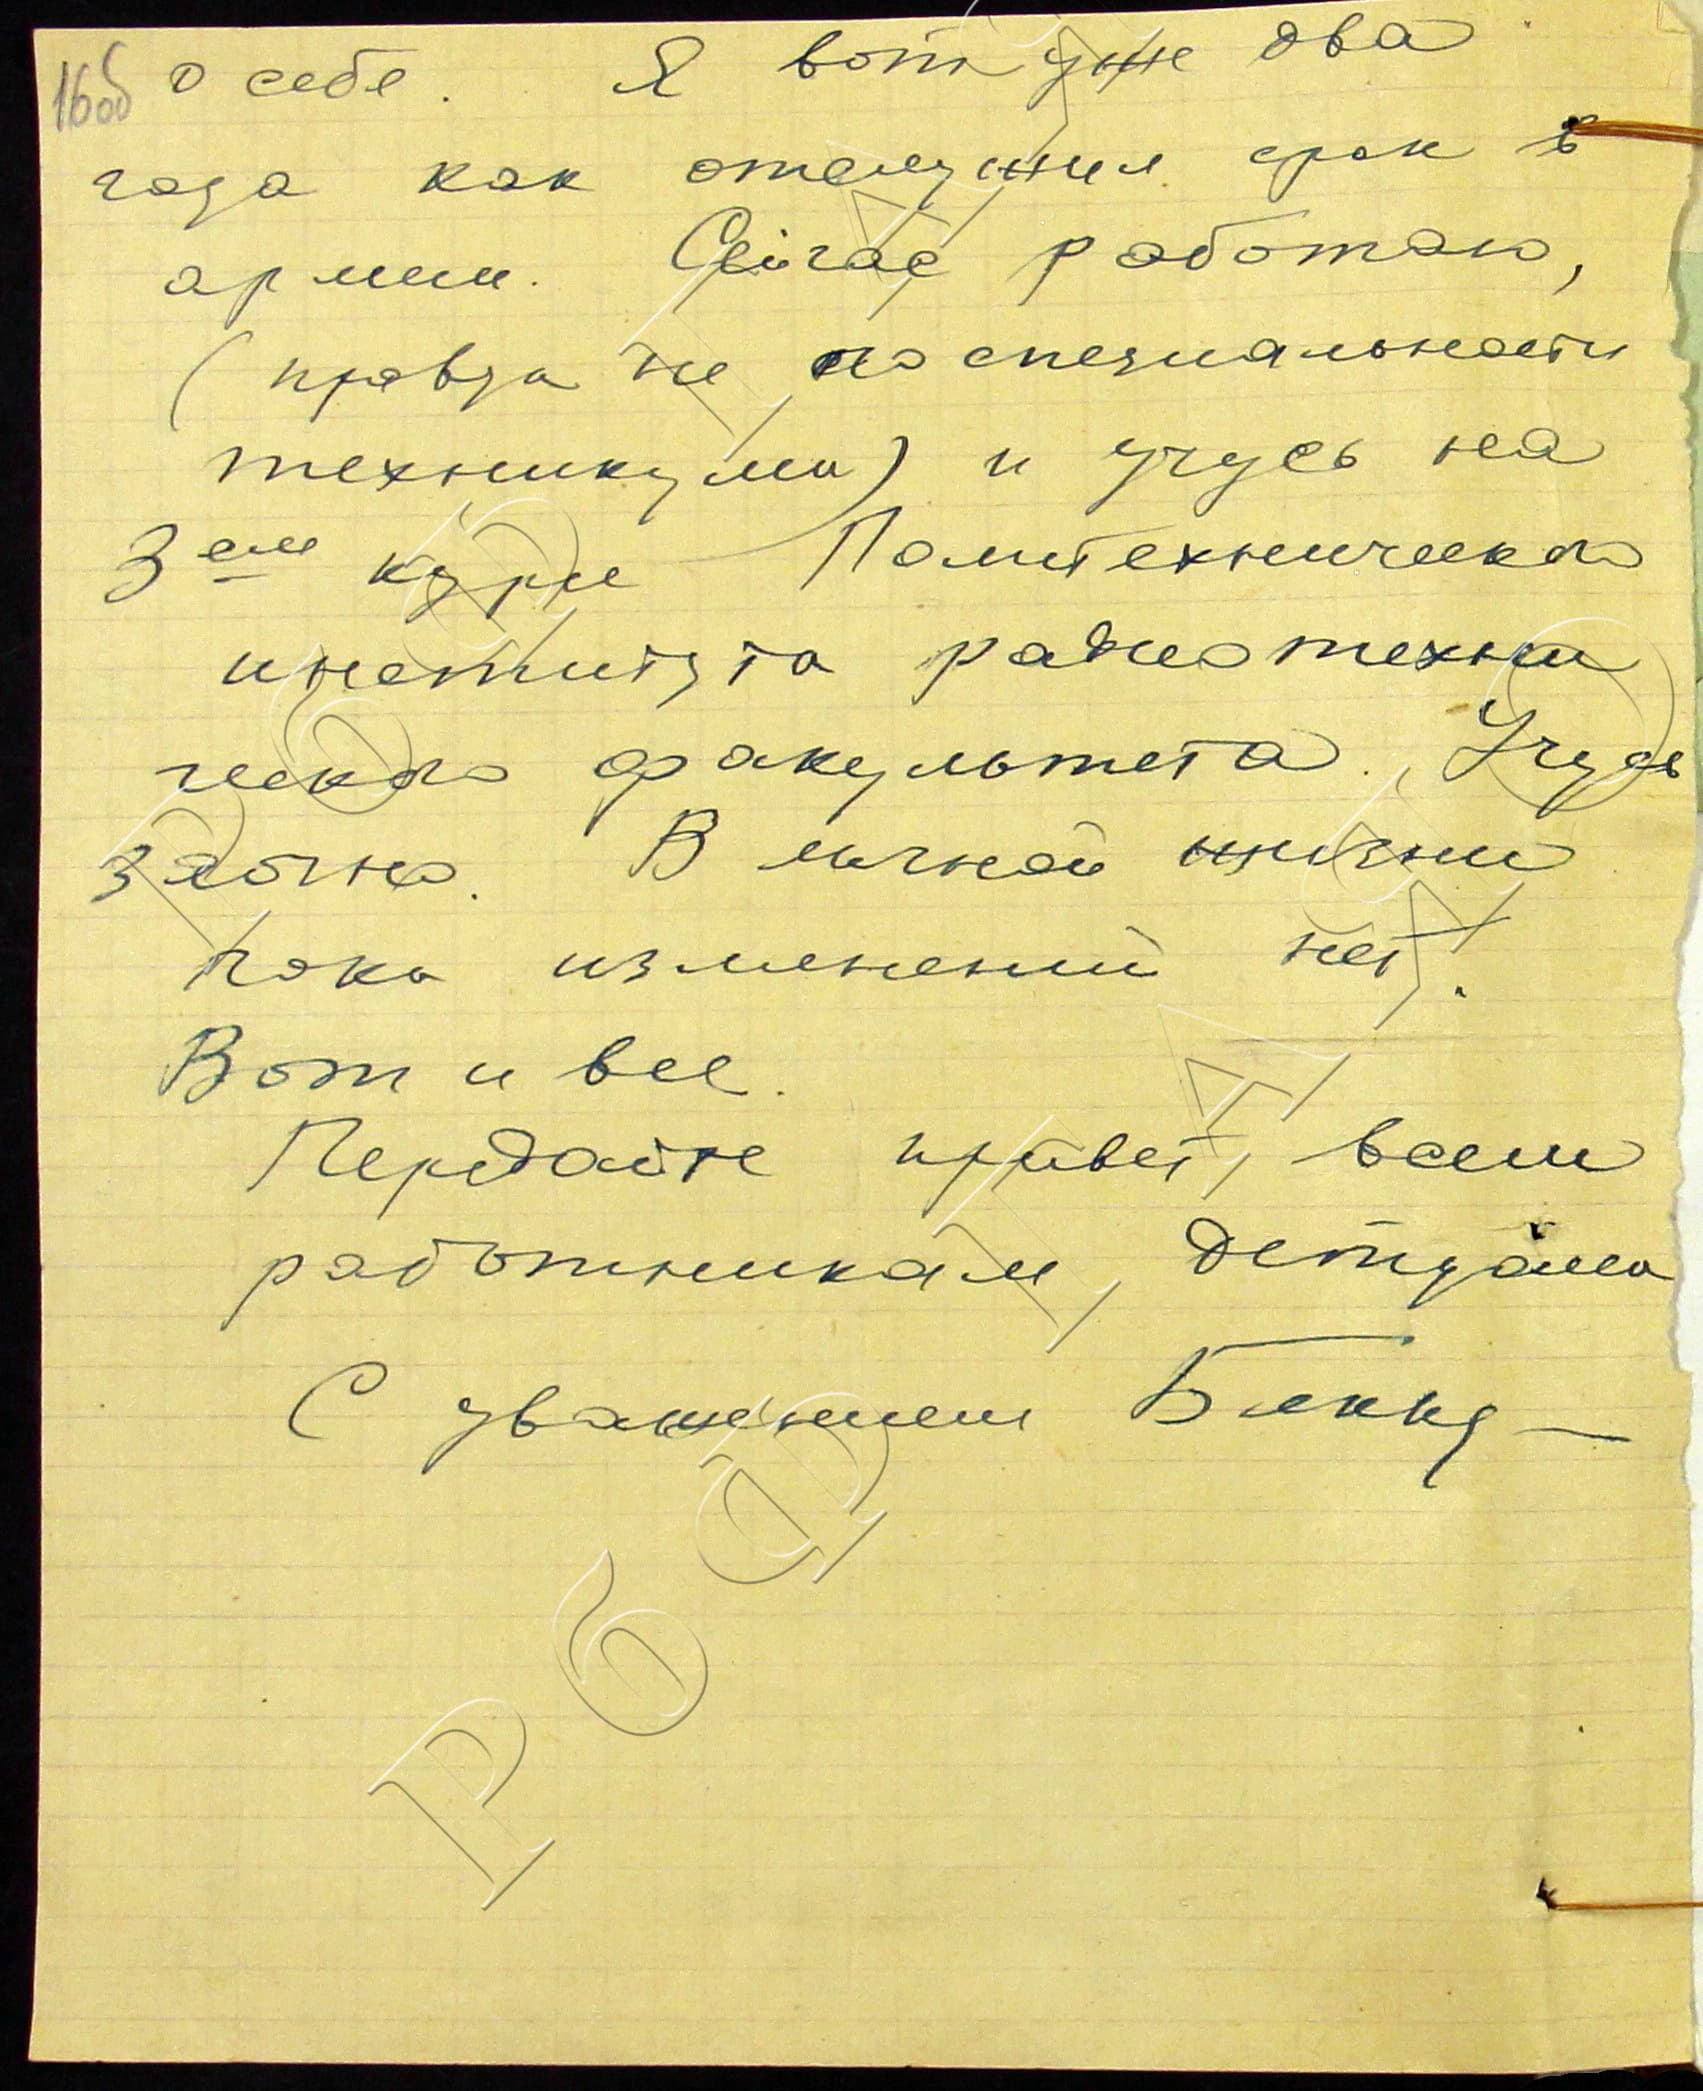 16об
о себе. Я вот уже два
года как отслужил срок в
армии. Сейчас работаю,
(правда не по специальности
техникума) и учусь на
3ем курсе Политехнического
института радиотехни
ческого факультета. Учусь
заочно. В личной жизни
пока изменений нет.
Вот и все.
Передайте привет, всем
работникам, детдома
С уважением